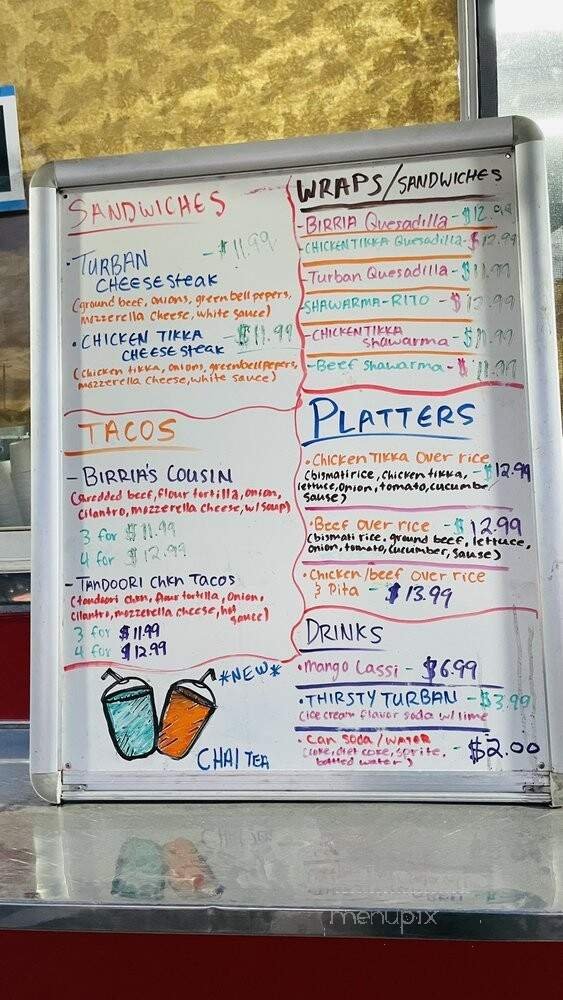 SANDWICHES
• TURBAN - $11.99
CHEESESteak
(ground beef, onions, green bell pepers,
mozzerella cheese, white sauce)
• CHICKEN TIKKA - $11.99
CHEESE Steak
(chicken tikka, onions, greenbellpepers,
mozzerella cheese, white sauce)
TACOS
- BIRRIA'S COUSIN
(sredded beef, flour tortilla, onion,
cilantro, mozzerella cheese, w/ soup)
3 for $11.99
4 for $12.99
- TANDOORI Chkn Tacos
(tandoori chkn, flour tortilla, onion,
cilantro, mozzerella cheese, hot
sauce)
3 for $11.99
4 for $12.99
*NEW*
CHAI TEA
WRAPS/SANDWICHES
- BIRRIA Quesadilla - $12.99
- CHICKEN TIKKA Quesadilla - $12.99
- Turban Quesadilla - $11.99
- SHAWARMA-RITO - $12.99
- CHICKEN TIKKA
shawarma - $11.99
- Beef Shawarma - $11.99
PLATTERS
• CHICKEN TIKKA over rice
(bismati rice, chicken tikka, - $12.99
lettuce, onion, tomato, cucumbe
sause)
• Beef over rice - $12.99
(bismati rice, ground beef, lettuce,
onion, tomato, cucumber, sause)
• Chicken/beef over rice
& Pita - $13.99
DRINKS
• Mango Lassi - $6.99
• THIRSTY TURBAN - $3.99
(ice cream flavor soda w/ lime
• Can soda/WATER
(coke, diet coke, sprite, - $2.00
bottled water)
menupix